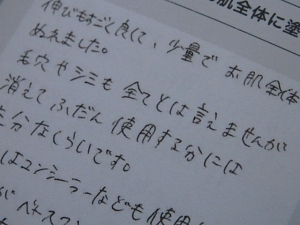 肌全体に塗
伸びもすごく良くて、少量で お肌全体
ぬれました。
毛穴やシミも 全てとは言えませんが
消えて ふだん 使用するかには
充分なくらいです。
はコンシーラーなども使用
が ベトつ